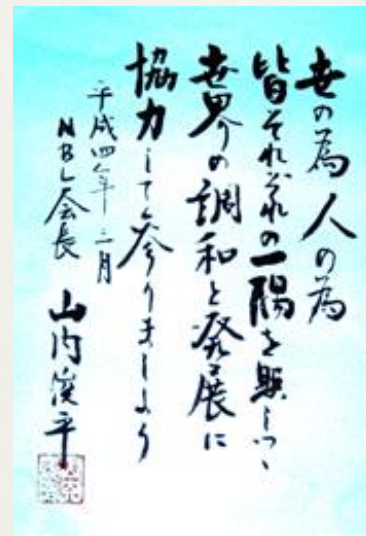 世の為人の為
皆それぞれの一隅を照しつゝ
世界の調和と発展に
協力して参りましょう
平成四年二月
NBL会長 山内俊平